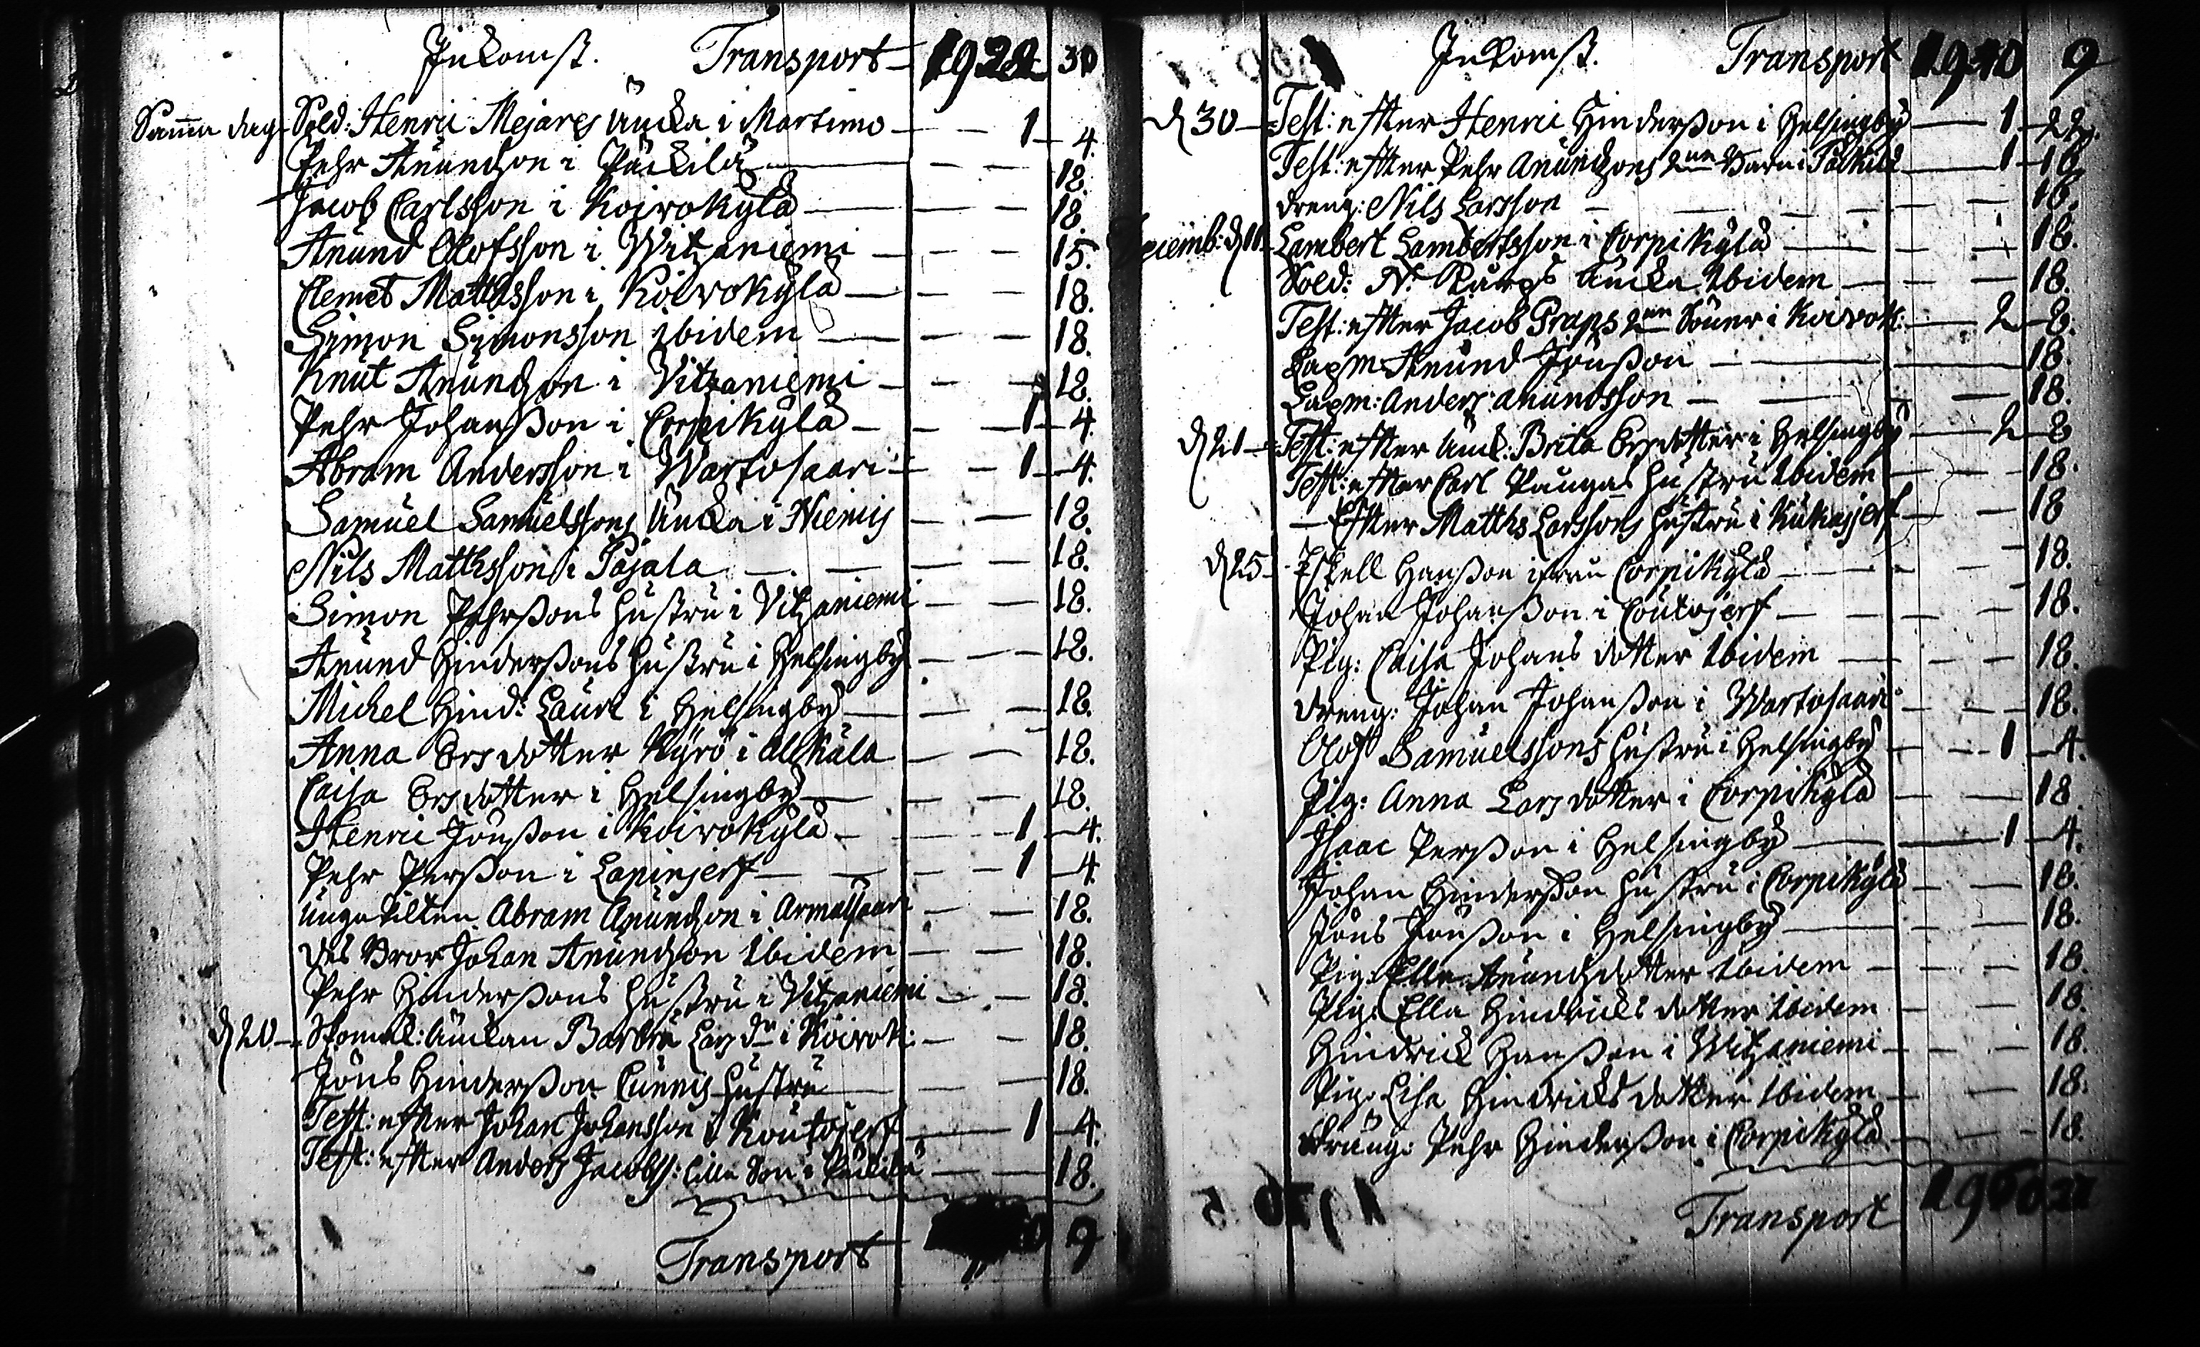 Inkomst. Transport 1924 30
Samma dag Sold: Henric Mejares Enka i Martimo 1 4.
Pehr Anundson i Päckilä 18.
Jacob Carlsson i Koivokylä 18.
Anund Olofsson i Witzaniemi 15.
Clemet Matthsson i Koivokylä 18.
Simon Simonsson ibidem 18.
Knut Anundson i Vitzaniemi 18.
Pehr Johansson i Corpikylä 1 4.
Abram Andersson i Wartosaari 1 4.
Samuel Samuelssons Enka i Niemis 18.
Nils Matthsson i Pajala 18.
Simon Pehrssons hustru i Vitzaniemi 18.
Anund Hinderssons hustru i Helsingby 18.
Michel Hind: Lauri i Helsingby 18.
Anna Ersdotter Kyrö i Alkula 18.
Caisa Ersdotter i Helsingby 18.
Henric Jönsson i Koivokylä 1 4.
Pehr Persson i Lapinjerf 1 4.
unga Pilten Abram Anundson i Armassaari 18.
des Bror Johan Anundson ibidem 18.
Pehr Hinderssons hustru i Vitzaniemi 18.
d 20 Skomak: Enkan Barbru Lars dr i Koivok: 18.
Jöns Hindersson Cunnis hustru 18.
Test: efter Johan Johansson i Koutojerf 1 4.
Test: efter Anders Jacobss: lilla Son i Päckilä 18.
Transport 9
Inkomst. Transport 1940 9
d 30 Test: efter Henric Hindersson i Helsingby 1 22.
Test: efter Pehr Anundsons 2ne Barn i Päckilä 1 18.
Dreng: Nils Larsson 18.
d 11 Lambert Lambertsson i Corpikylä 18.
Sold: N. Enka ibidem 18.
Test: efter Jacob Graps 2ne Söner i Koivok: 2 8.
Lapm Anund Jönsson 18.
Lapm: Anders Anundsson 18.
d 21 Test: efter Enk: Brita Ersdotter i Helsingby 2 8
Test: efter Carl Paugas hustru ibidem 18.
Efter Matths Larssons hustru i Kukasjerf 18
d 25 Eskell Hansson ifrån Corpikylä 18.
Johan Johansson i Coutojerf 18.
Pig: Caisa Johans dotter ibidem 18.
Dreng: Johan Johansson i Wartosaari 18.
Olof Samuelssons hustru i Helsingby 1 4.
Pig: Anna Lars dotter i Corpikylä 18
Isaac Persson i Helsingby 1 4.
Johan Hindersson hustru i Corpikylä 18.
Jöns Jönsson i Helsingby 18.
Pig: Ella Anunds dotter ibidem 18.
Pig: Ella Hindricks dotter ibidem 18.
Hindrick Hansson i Witzaniemi 18.
Pig: Lisa Hindricks dotter ibidem 18.
Dräng: Pehr Hindersson i Corpikylä 18.
Transport 1960 21